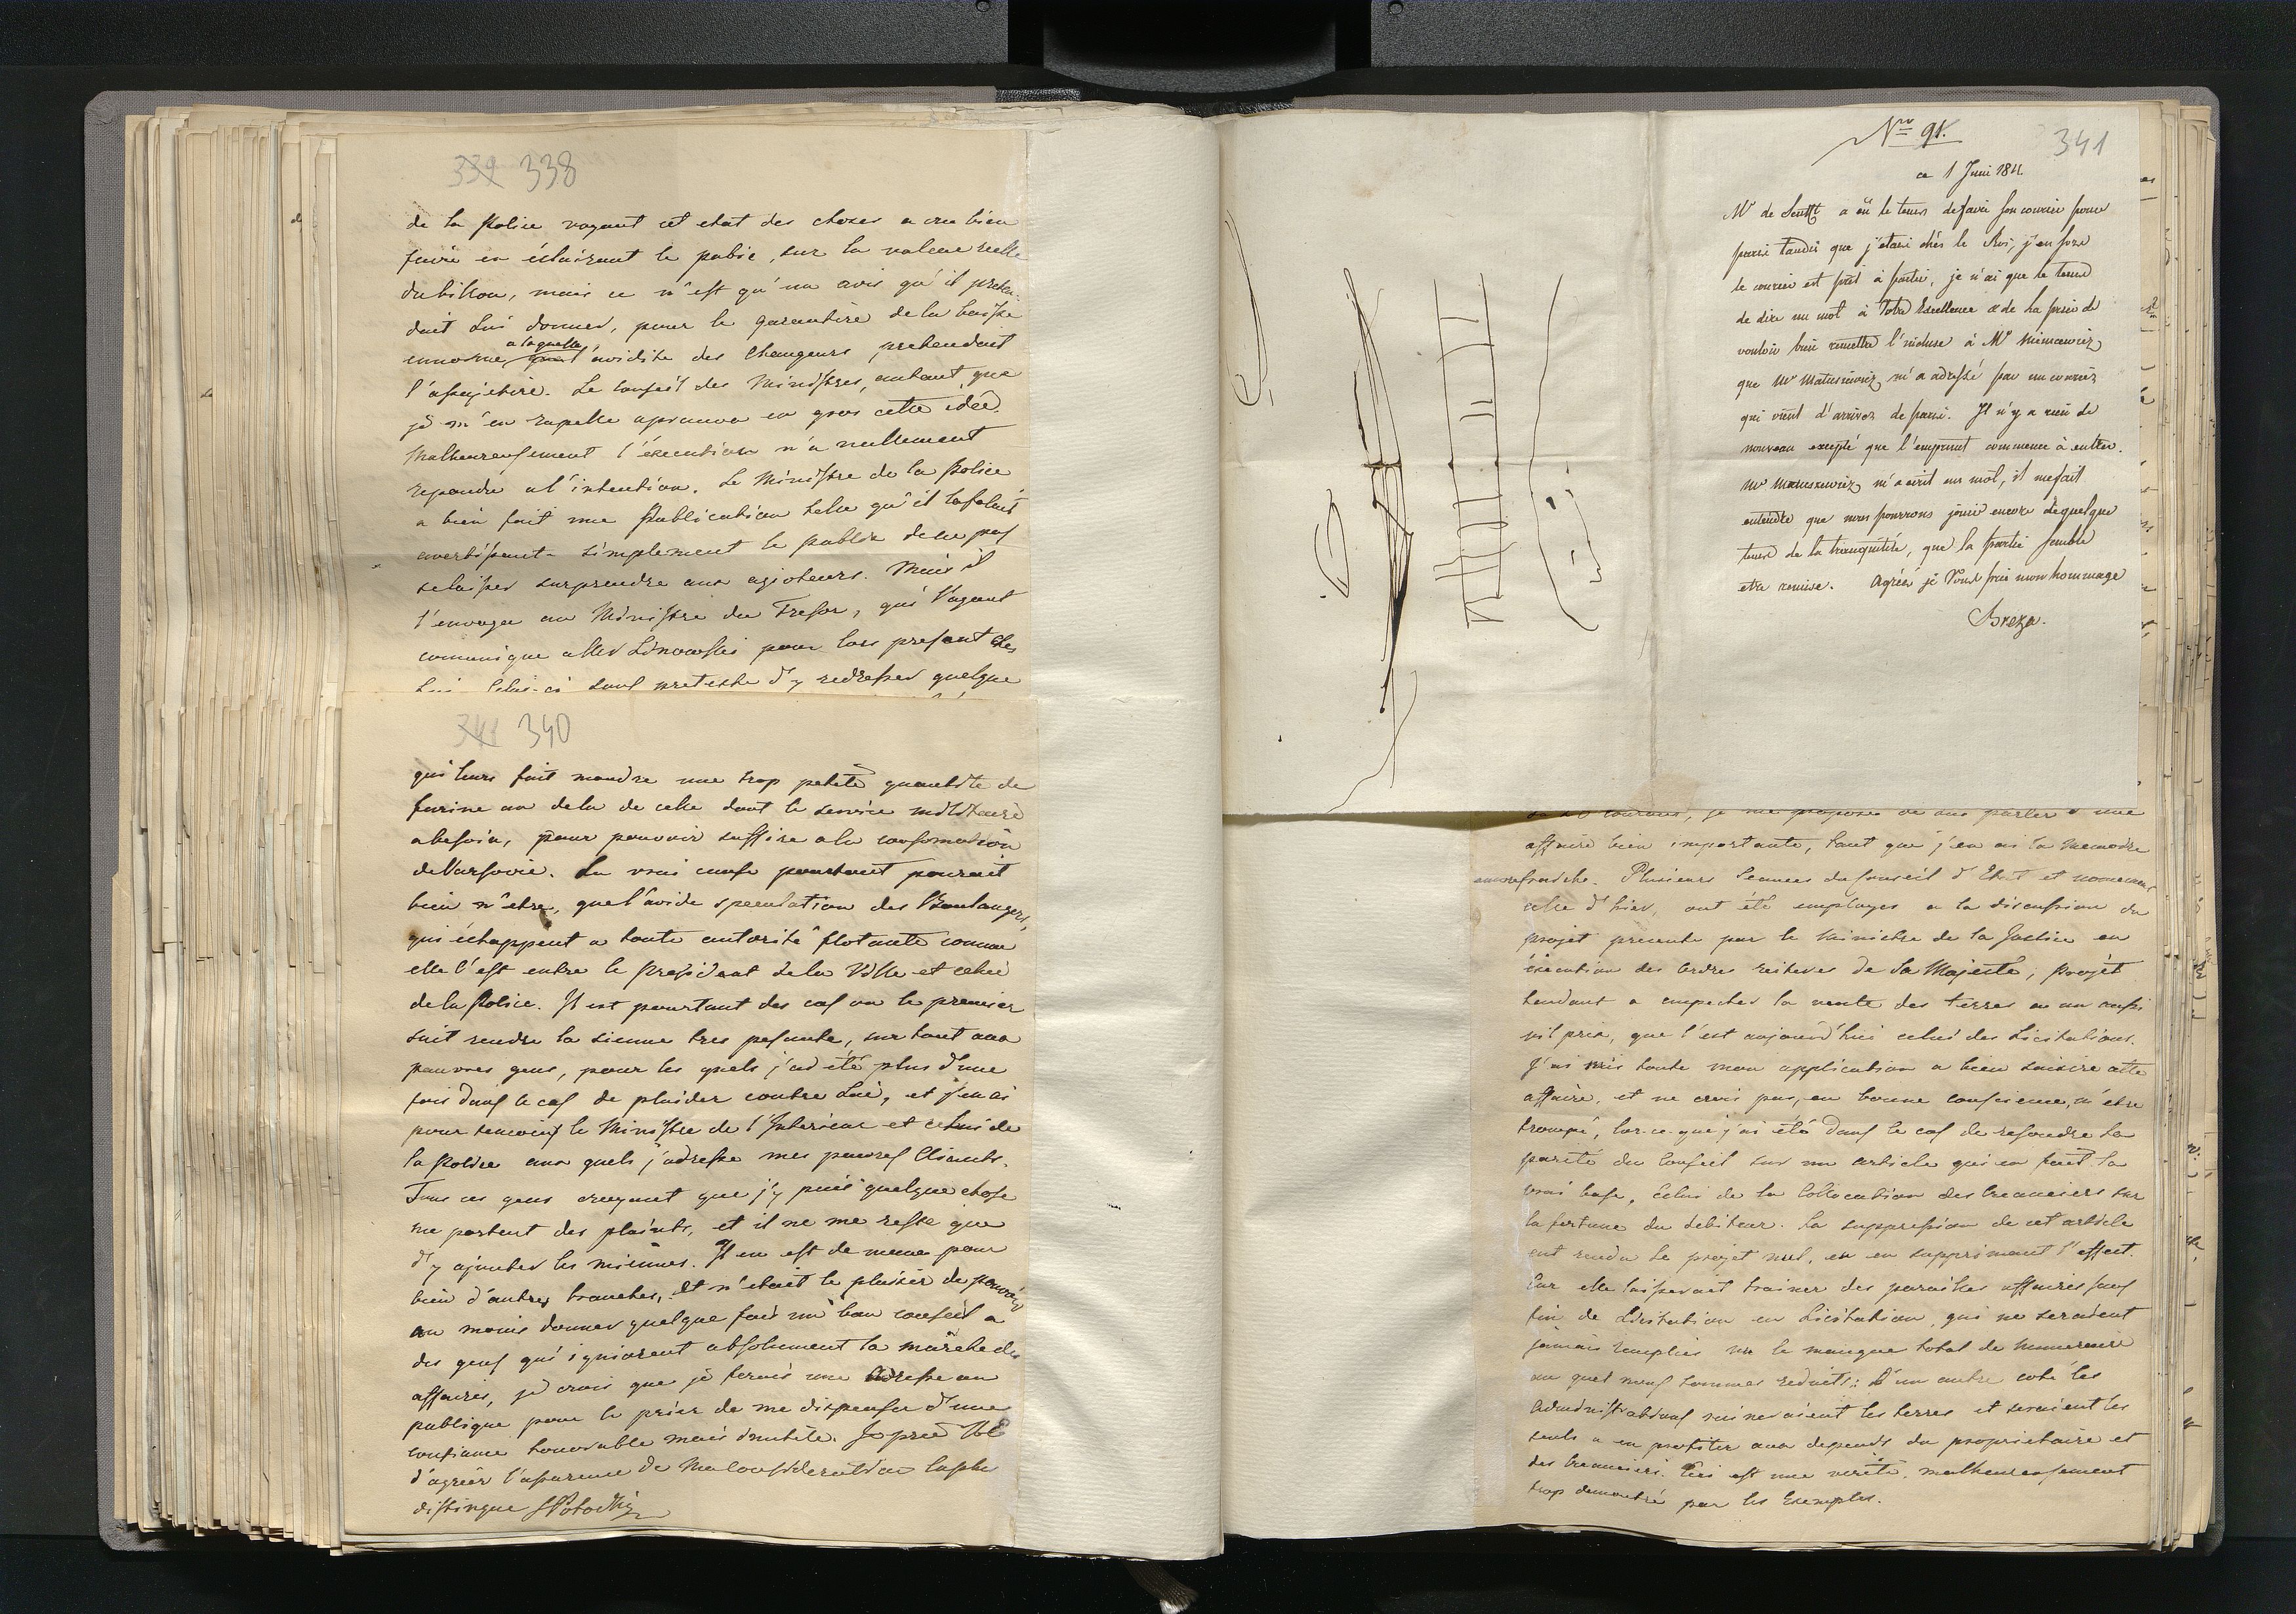 339 338
de la Police voyant cet etat des choses a cru bien
faire en éclairant le public, sur la valeur reelle
du billon, mais ce n'est qu'un avis qu'il preten-
dait lui donner, pour le garantire de la baisse
ennorme, a laquelle l'avidite des Changeurs pretendait
l'assujetire. Le Conseil des Ministres, autant que
je m'en rapelle aprouva en gros cette idée.
Malheureusement l'éxecution n'a nullement
repondu a l'intention. Le Ministre de la Police
a bien fait une Publication telle qu'il la falait
avertissant simplement le public de ne pas
se laisser surprendre aux agioteurs. Mais il
l'envoya au Ministre du Tresor, qui l'ayant
comunique a Mr Linowski pour lors present chez
Lui Celui-ci sous pretexte d'y redresser quelque
341 340
qui leurs fait moudre une trop petite quantite de
farine au dela de celle dont le service militaire
a besoin, pour pouvoir suffire a la consomation
de Varsovie. La vrai cause pourtant pourait
bien n'etre, que l'avide speculation des Boulangers,
qui échappent a toute autorité flotante comme
elle l'est entre le President de la Ville et celui
de la Police. Il est pourtant des cas ou le premier
sait rendre la sienne tres pesante, sur tout aux
pauvres gens, pour les quels j'ai été plus d'une
fois dans le cas de plaider contre Lui, et j'en ai
pour temoins le Ministre de l'Interieur et celui de
la Police aux quels j'adresse mes pauvres Clients.
Tous ces gens croyant que j'y puis quelque chose
me portent des plaints, et il ne me reste que
d'y ajouter les miennes. Il en est de meme pour
bien d'autres branches, et n'etait le plaisir de pouvoir
au moins donner quelque fois un bon conseil a
des gens qui ignorent absolument la marche des
affaires, je crois que je ferais une Adresse au
publique pour le prier de me dispenser d'une
confiance honorable mais inutile. Je prie V.E.
d'agréer l'assurance de Ma Consideration la plus
distingue SPotocki
Nro 91.
341
ce 1 Juin 1811.
Mr de Senfft a eu le tems de faire son courrier pour
paris tandis que j'etais chés le Roi,
le courier est prêt à partir, je n'ai que le tems
de dire un mot à Votre Excellence & de La prier de
vouloir bien remettre l'incluse à Mr Niemcewicz
que Mr Matusiewicz m'a adressé par un courier
qui vient d'arriver de paris. Il n'y a rien de
nouveau excepté que l'emprunt commence à entrer.
Mr Matusiewicz m'a ecrit un mot, il me fait
entendre que nous pourrons jouir encore de quelque
tems de la tranquilité, que la partie semble
etre remise. Agréés je Vous prie mon hommage
Breza.
je me propose de vous parler d'une
affaire bien importante, tant que j'en ai la memoire
encore fraiche. Plusieurs Seances du Conseil d'Etat et nomement
celle d'hier, ont été employes a la discussion du
projet presente par le Ministre de la Justice en
éxecution des ordres reiteres de Sa Majesté, projet
tendant a empecher la vente des terres a un aussi
vil prix, que l'est aujourd'hui celui des Licitations.
J'ai mis toute mon application a bien saisire cette
affaire, et ne crois pas, en bonne conscience, m'etre
trompé, lors-ce-que j'ai été dans le cas de resoudre la
parité du Conseil sur un article qui en fait la
vrai base, celui de la Collocation des Creanciers sur
la fortune du debiteur. La suppression de cet article
eut rendu le projet nul, en en supprimant l'effect.
Car elle laisserait trainer des pareilles affaires sans
fin de Licitation en Licitation, qui ne seraient
jamais remplies vu le manque total de Numeraire
au quel nous sommes reduits: D'un autre coté les
Administrations ruineraient les terres et seraient les
seuls a en profiter aux depends du proprietaire et
des Creanciers. Ceci est une verité, malheureusement
trop demontré par les Exemples.